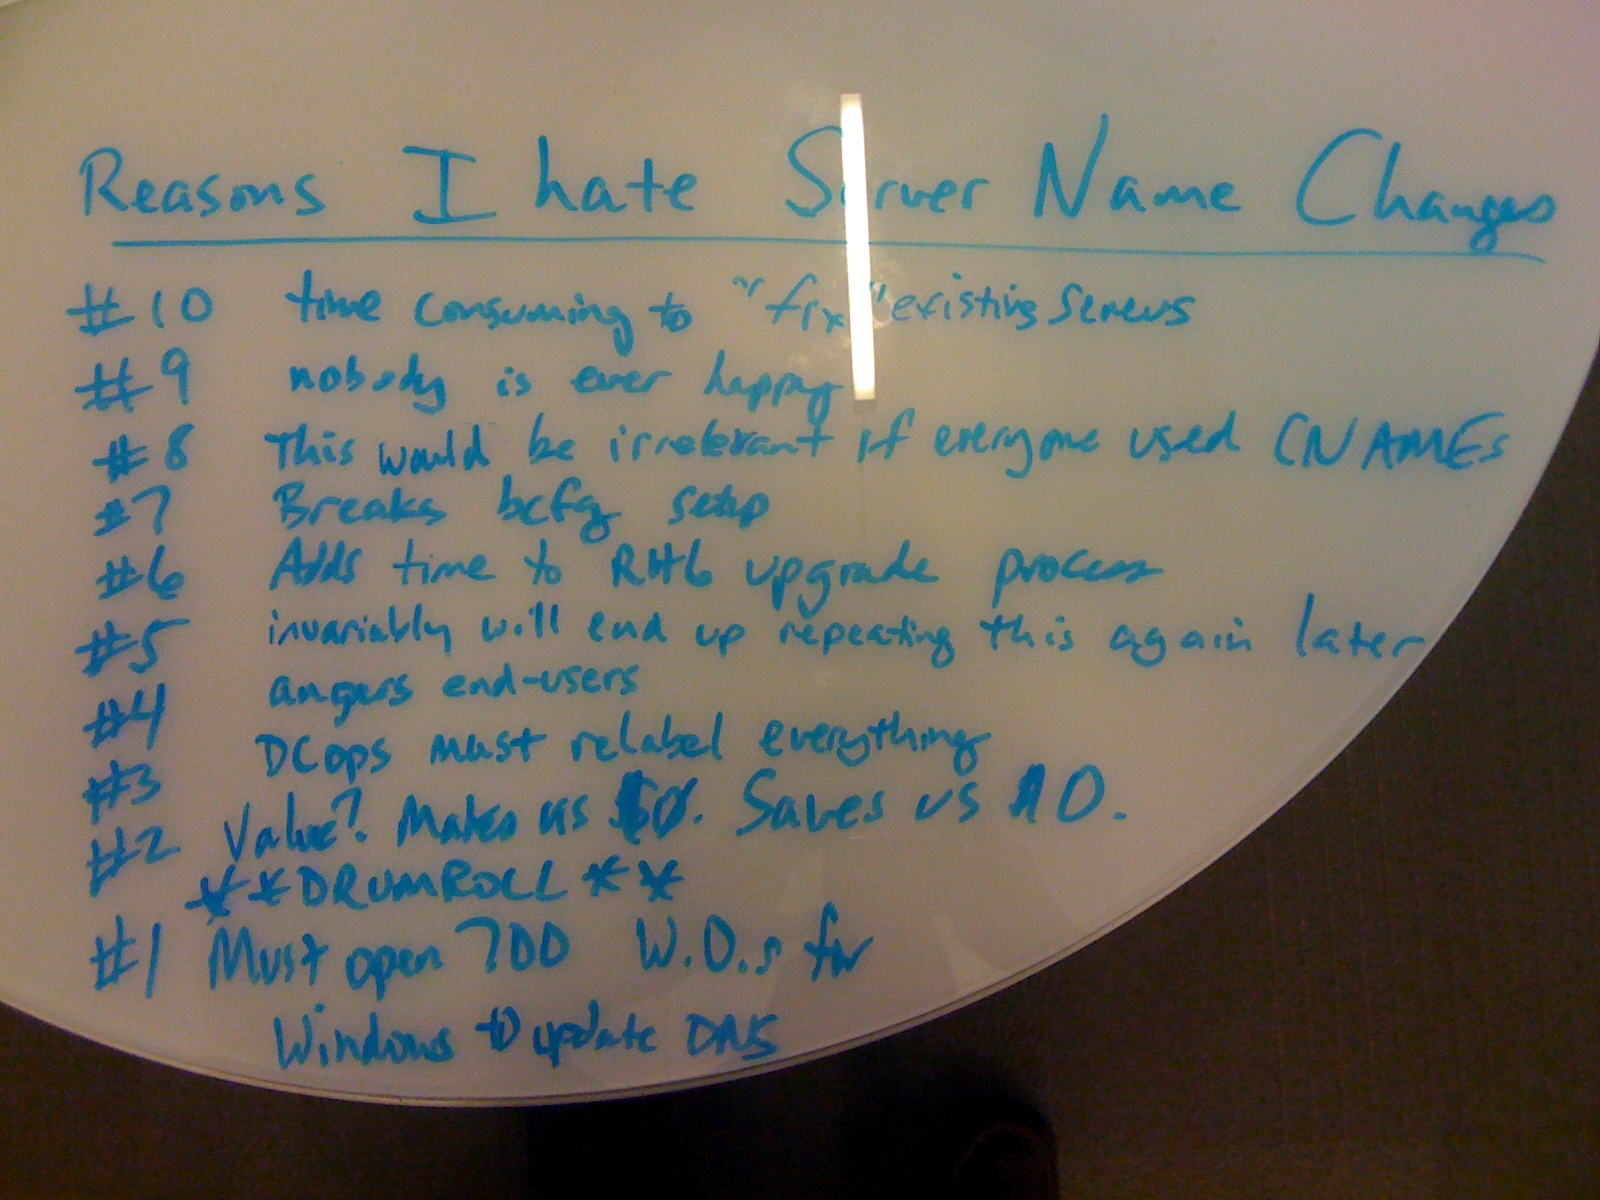 Reasons I hate Server Name Changes
#10 time consuming to "fix" existing servers
#9 nobody is ever happy
#8 This would be irrelevant if everyone used CNAMEs
#7 Breaks bcfg setup
#6 Adds time to RH6 upgrade process
#5 invariably will end up repeating this again later
#4 angers end-users
#3 DCops must relabel everything
#2 Value? Makes us $0. Saves us $0.
**DRUMROLL**
#1 Must open 700 W.O.s for
Windows to update DNS